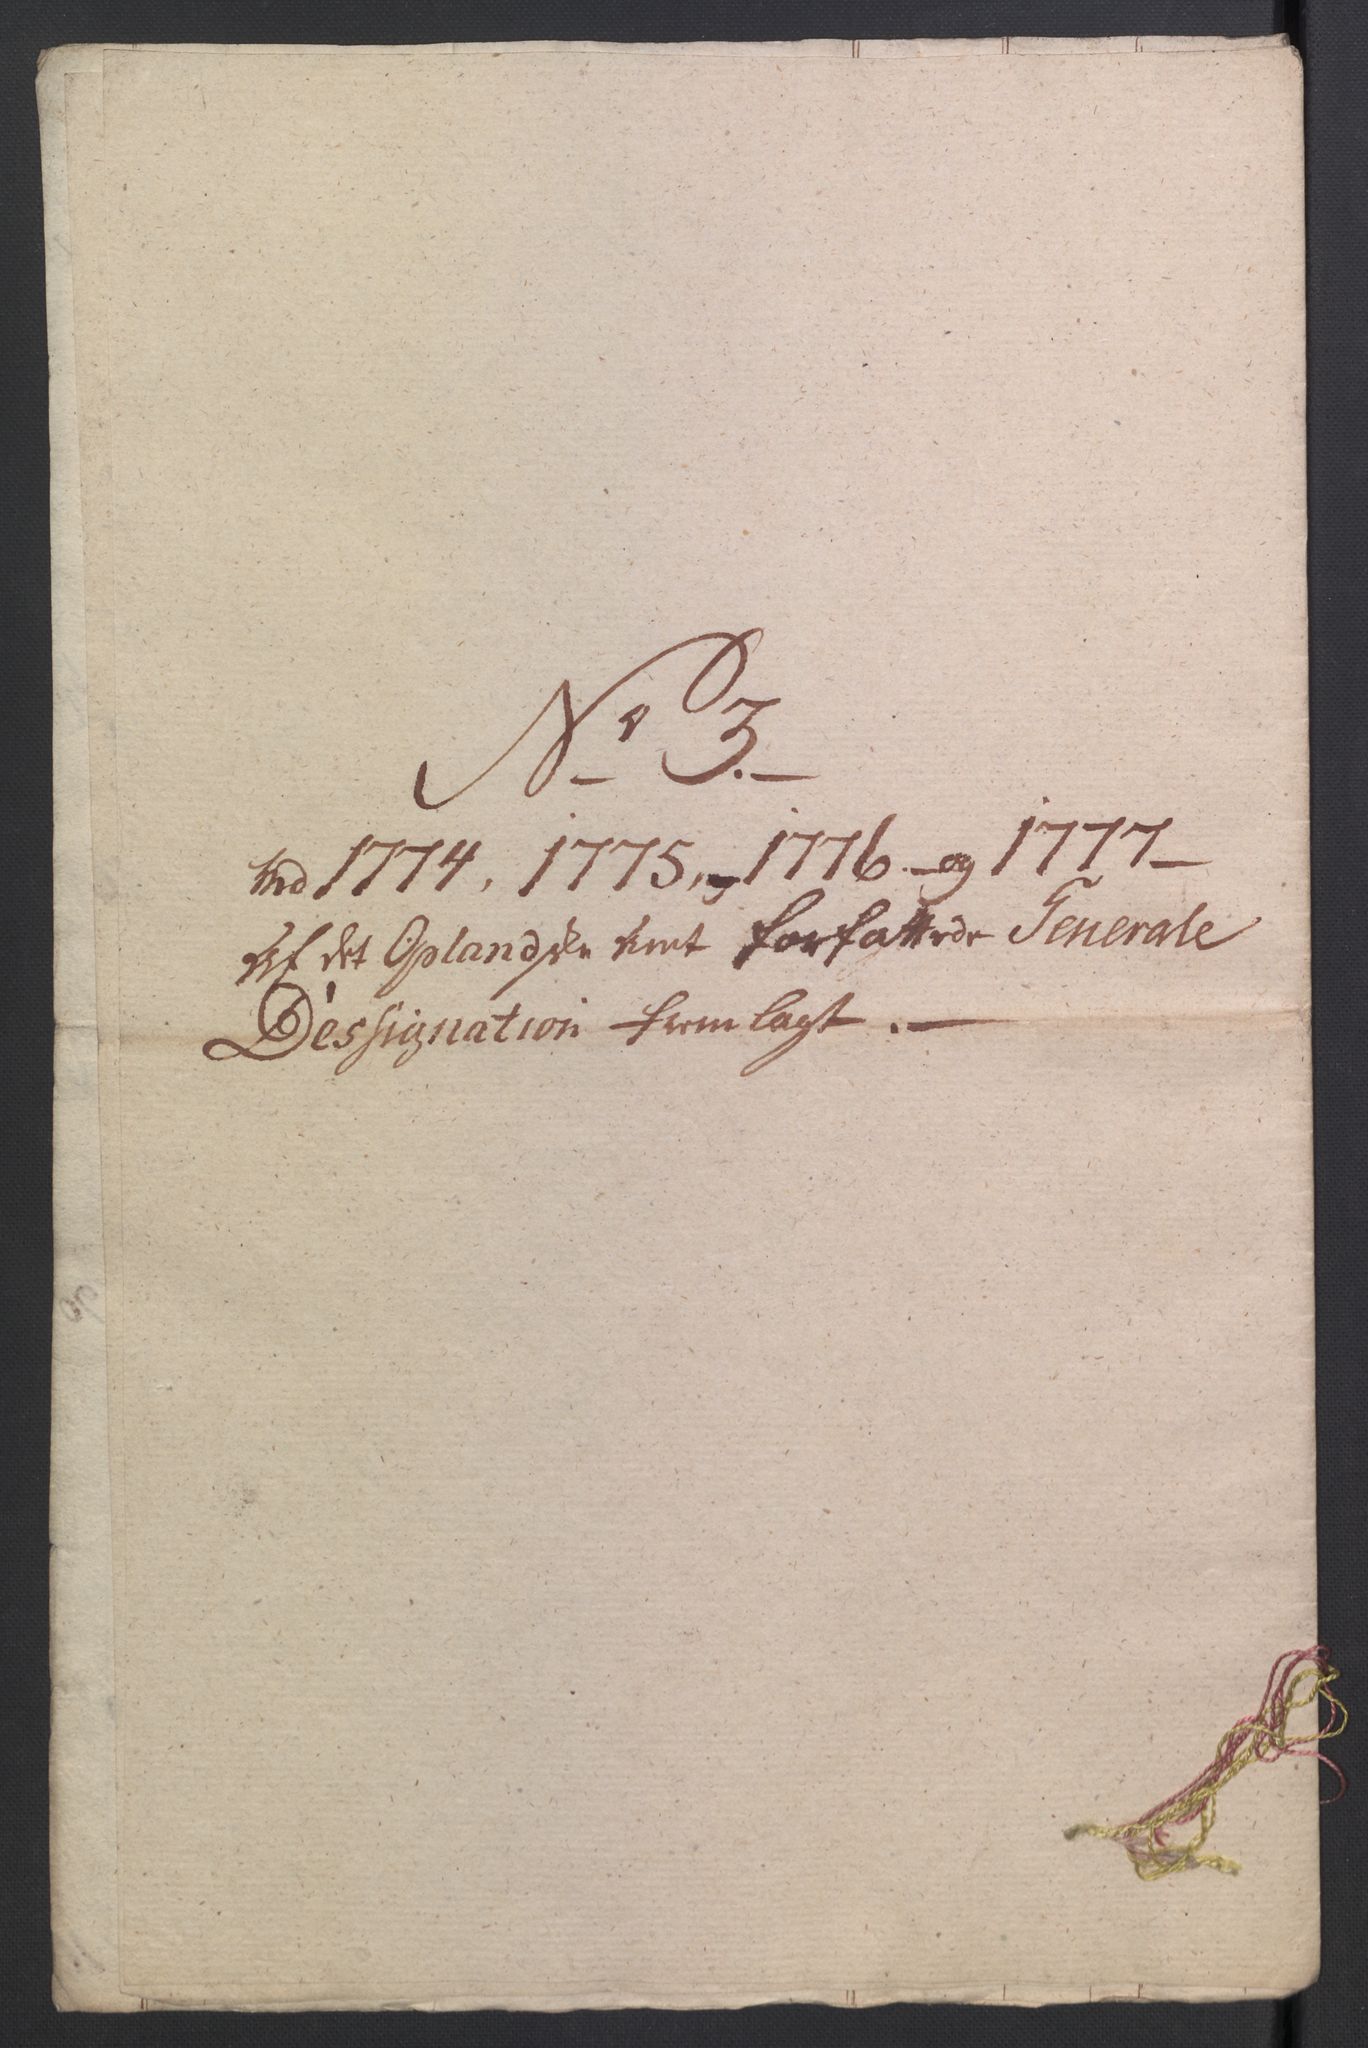 No 3.
ved 1774, 1775, 1776 og 1777
Af det Oplandske Amt forfattede Generale
Dessignation fremlagt.